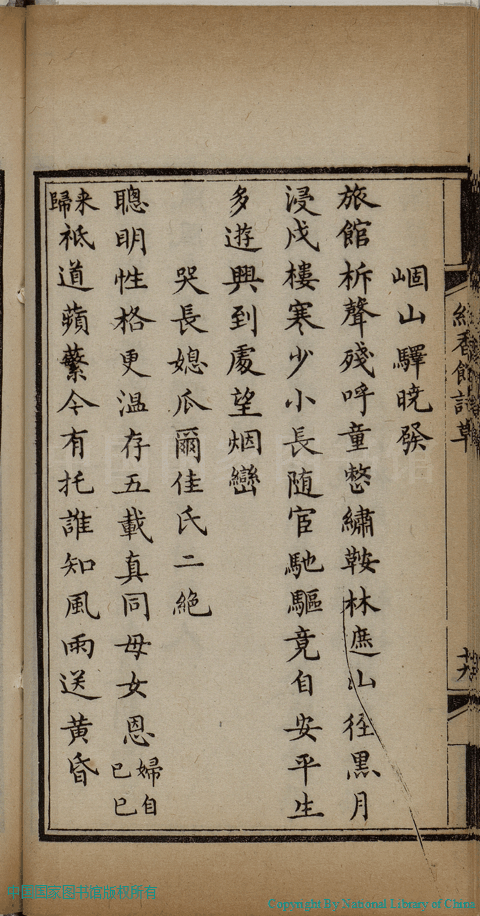 崓山驛曉發
旅館柝聲殘呼童整繡鞍林遮山徑黑月
浸戍樓寒少小長随宦馳驅竟自安平生
多遊興到處望烟巒
哭長媳瓜爾佳氏二絶
聰明性格更温存五載真同母女恩婦自己巳
来歸祗道蘋蘩今有托誰知風雨送黄昏
香館詩草
中国国家图书馆版权所有
Copyright By National Library of China